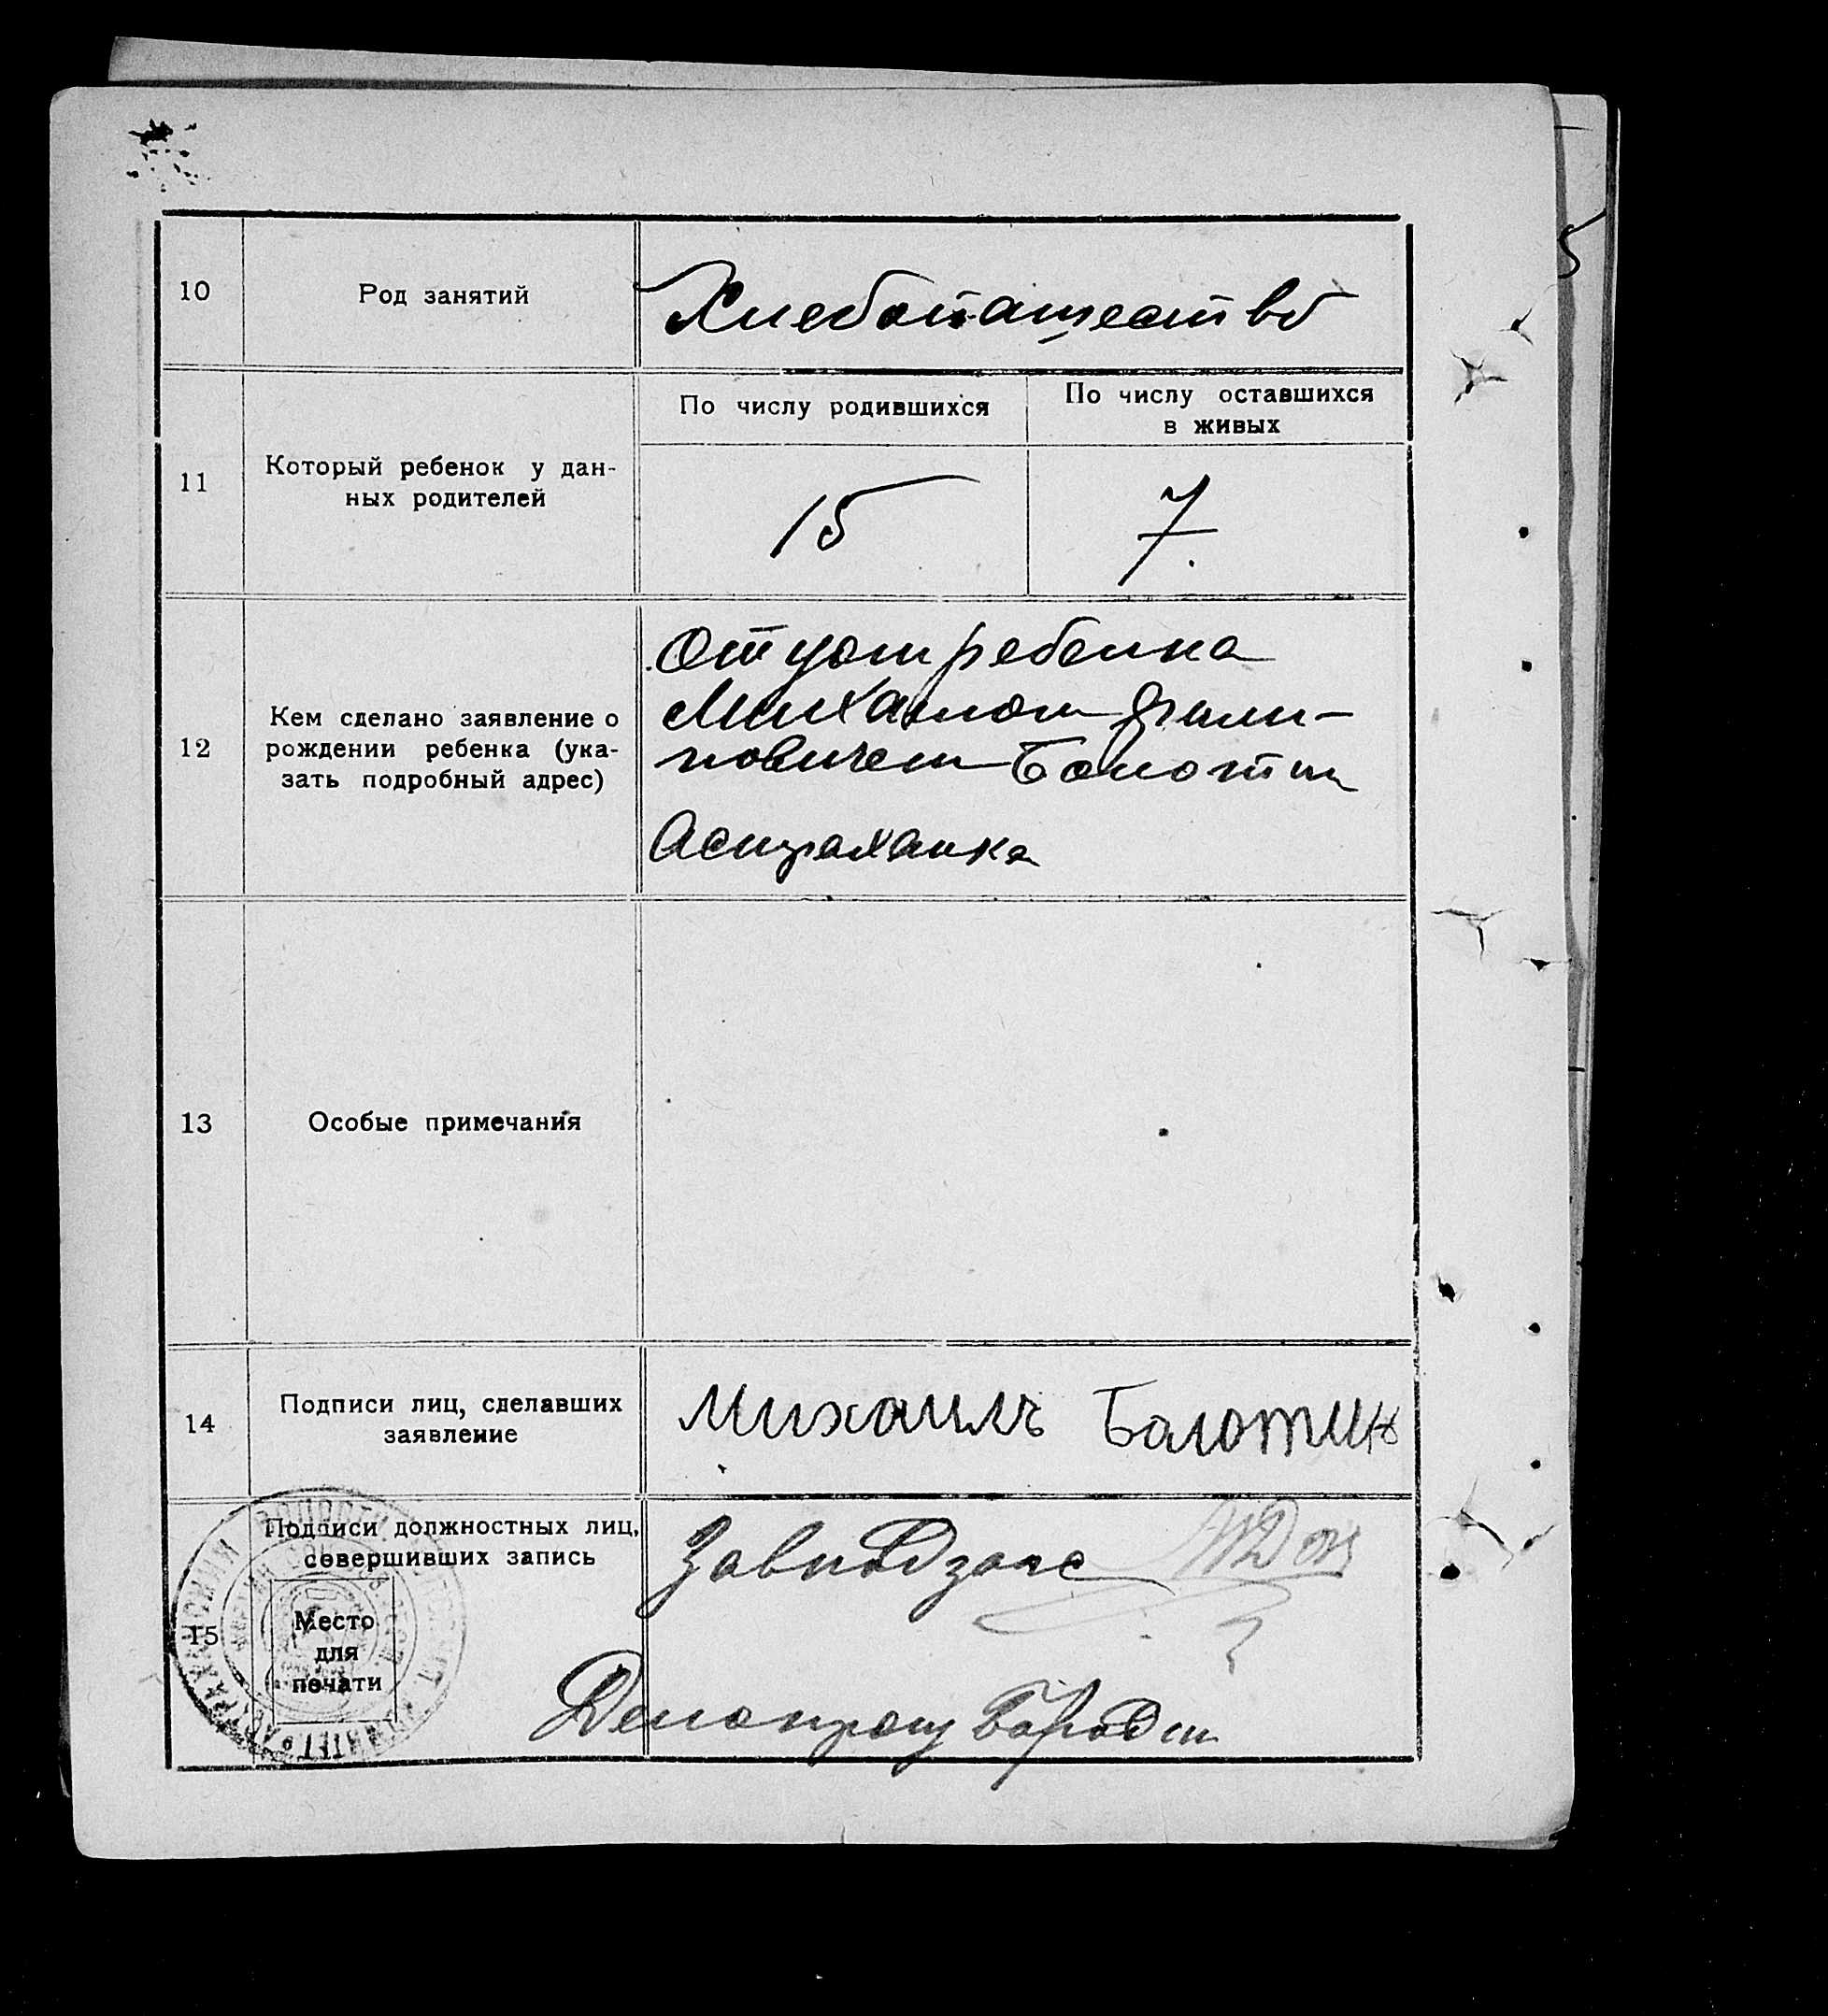 10
Род занятий
Хлебопашество
11
Который ребенок у дан-
ных родителей
По числу родившихся
По числу оставшихся
в живых
15
7.
12
Кем сделано заявление о
рождении ребенка (ука-
зать подробный адрес)
Отцом ребенка
Михаилом Фили-
повичем Болотин
Астраханка
13
Особые примечания
14
Подписи лиц, сделавших
заявление
Михаилъ Балотин
15
Подписи должностных лиц,
совершивших запись
Место
для
печати
Завподзагс
Делопроиз